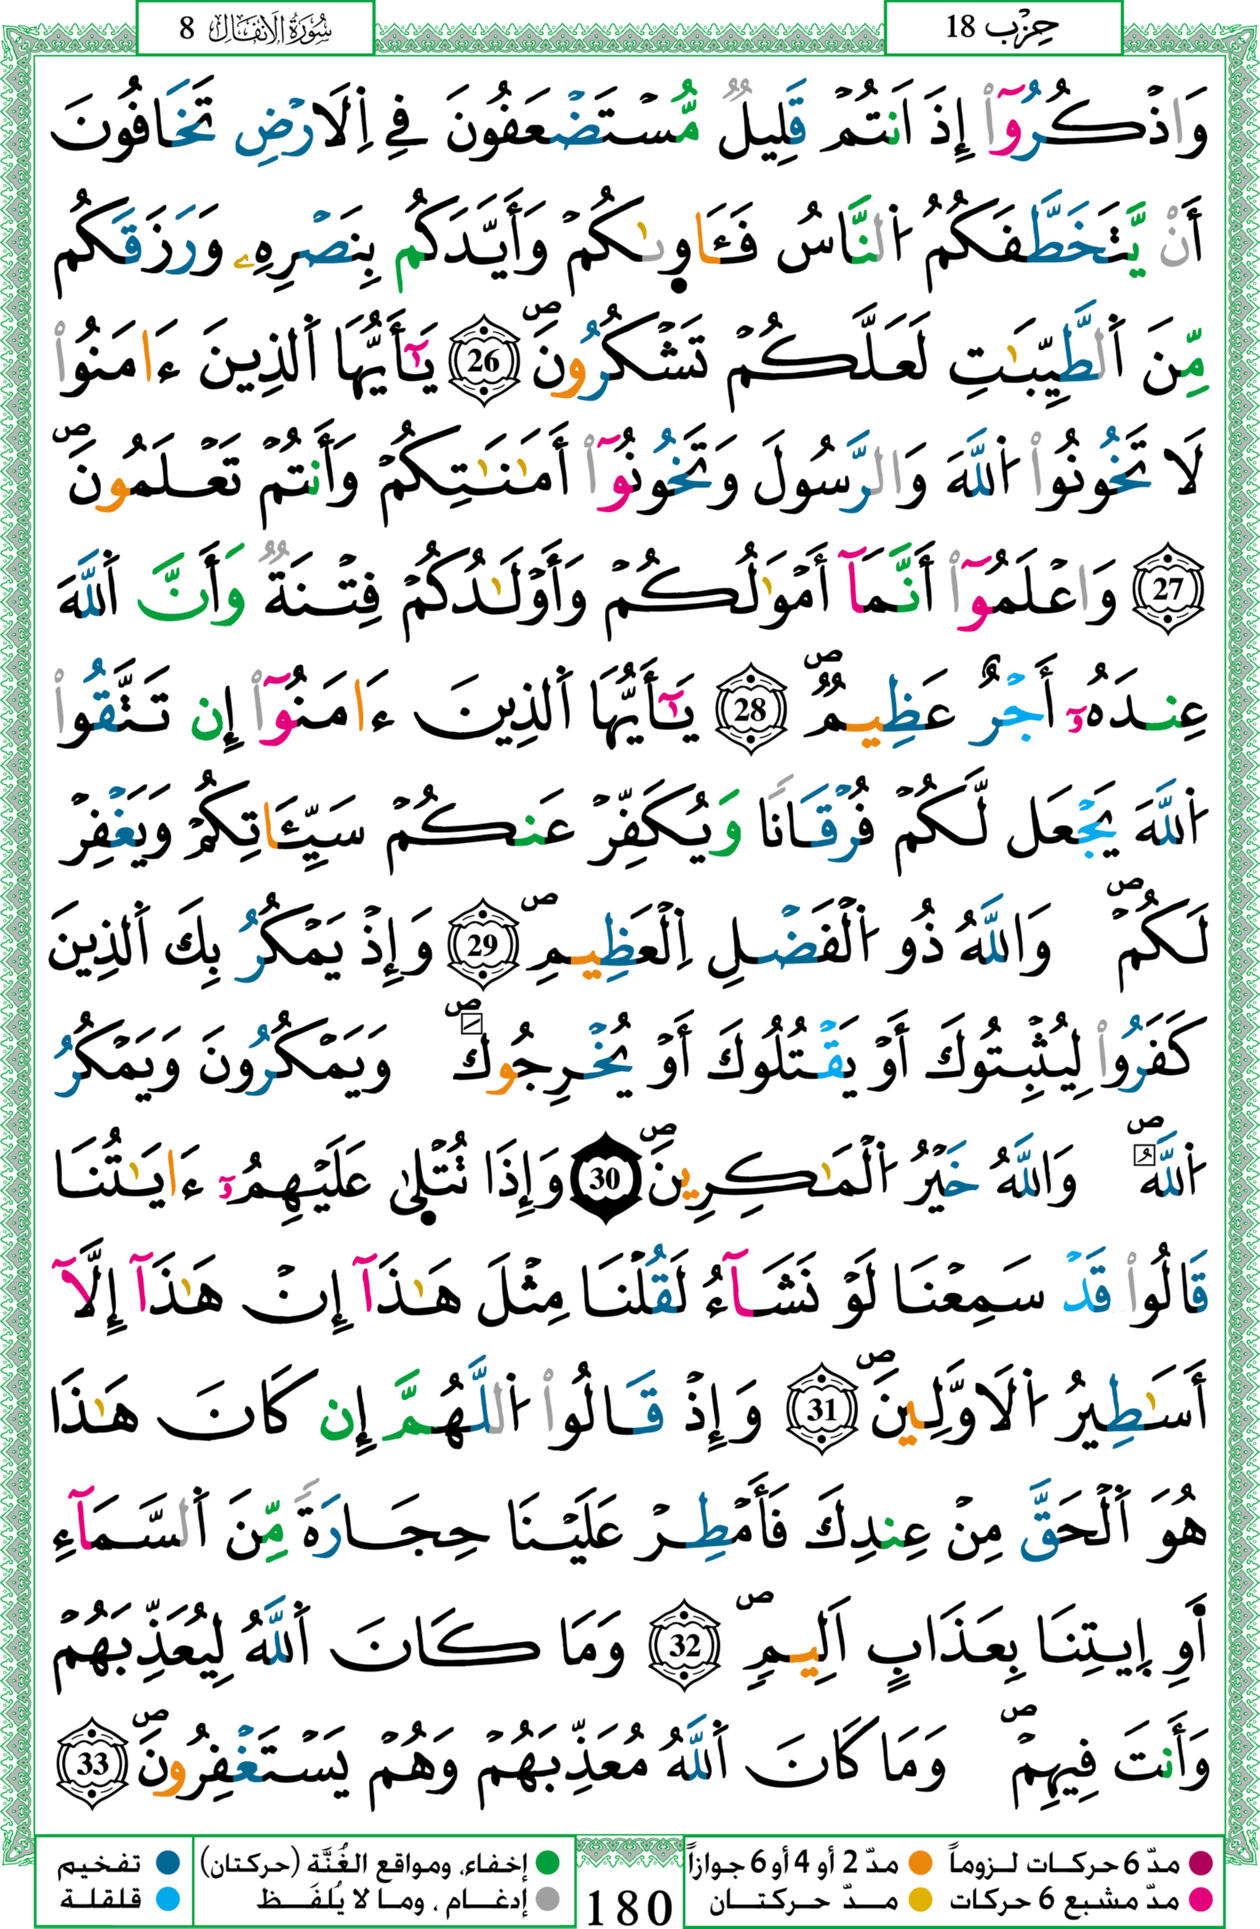 حِزْب 18
سُورَةُ الاَنفَالِ 8
وَاذْكُرُوٓاْ إِذَ اَنتُمْ قَلِيلٞ مُّسْتَضْعَفُونَ فِے اِلَارْضِ تَخَافُونَ
أَنْ يَّتَخَطَّفَكُمُ اُلنَّاسُ فَـَٔاو۪ىٰكُمْ وَأَيَّدَكُم بِنَصْرِهِۦ وَرَزَقَكُم
مِّنَ اَلطَّيِّبَٰتِ لَعَلَّكُمْ تَشْكُرُونَۖ 26 يَٰٓأَيُّهَا اَلذِينَ ءَامَنُواْ
لَا تَخُونُواْ اُللَّهَ وَالرَّسُولَ وَتَخُونُوٓاْ أَمَٰنَٰتِكُمْ وَأَنتُمْ تَعْلَمُونَۖ
27 وَاعْلَمُوٓاْ أَنَّمَآ أَمْوَٰلُكُمْ وَأَوْلَٰدُكُمْ فِتْنَةٞ وَأَنَّ اَللَّهَ
عِندَهُۥٓ أَجْرٌ عَظِيمٞۖ 28 يَٰٓأَيُّهَا اَلذِينَ ءَامَنُوٓاْ إِن تَتَّقُواْ
اُللَّهَ يَجْعَل لَّكُمْ فُرْقَانٗا وَيُكَفِّرْ عَنكُمْ سَيِّـَٔاتِكُمْ وَيَغْفِرْ
لَكُمْۖ وَاللَّهُ ذُو اُلْفَضْلِ اِلْعَظِيمِۖ 29 وَإِذْ يَمْكُرُ بِكَ اَلذِينَ
كَفَرُواْ لِيُثْبِتُوكَ أَوْ يَقْتُلُوكَ أَوْ يُخْرِجُوكَۖ وَيَمْكُرُونَ وَيَمْكُرُ
اُللَّهُۖ وَاللَّهُ خَيْرُ اُلْمَٰكِرِينَۖ 30 وَإِذَا تُتْل۪ىٰ عَلَيْهِمُۥٓ ءَايَٰتُنَا
قَالُواْ قَدْ سَمِعْنَا لَوْ نَشَآءُ لَقُلْنَا مِثْلَ هَٰذَآ إِنْ هَٰذَآ إِلَّآ
أَسَٰطِيرُ اُلَاوَّلِينَۖ 31 وَإِذْ قَالُواْ اُللَّهُمَّ إِن كَانَ هَٰذَا
هُوَ اَلْحَقَّ مِنْ عِندِكَ فَأَمْطِرْ عَلَيْنَا حِجَارَةٗ مِّنَ اَلسَّمَآءِ
أَوِ اِيتِنَا بِعَذَابٍ اَلِيمٖۖ 32 وَمَا كَانَ اَللَّهُ لِيُعَذِّبَهُمْ
وَأَنتَ فِيهِمْۖ وَمَا كَانَ اَللَّهُ مُعَذِّبَهُمْ وَهُمْ يَسْتَغْفِرُونَۖ 33
مدّ 6 حركات لـزوماً مدّ 2 أو 4 أو 6 جوازاً
مدّ مشبع 6 حركات مـدّ حركتـان
إخفاء، ومواقع الغُنَّة (حركتان) تفخيم
إدغـام ، ومـا لا يُلفَـظ قلقلة
180